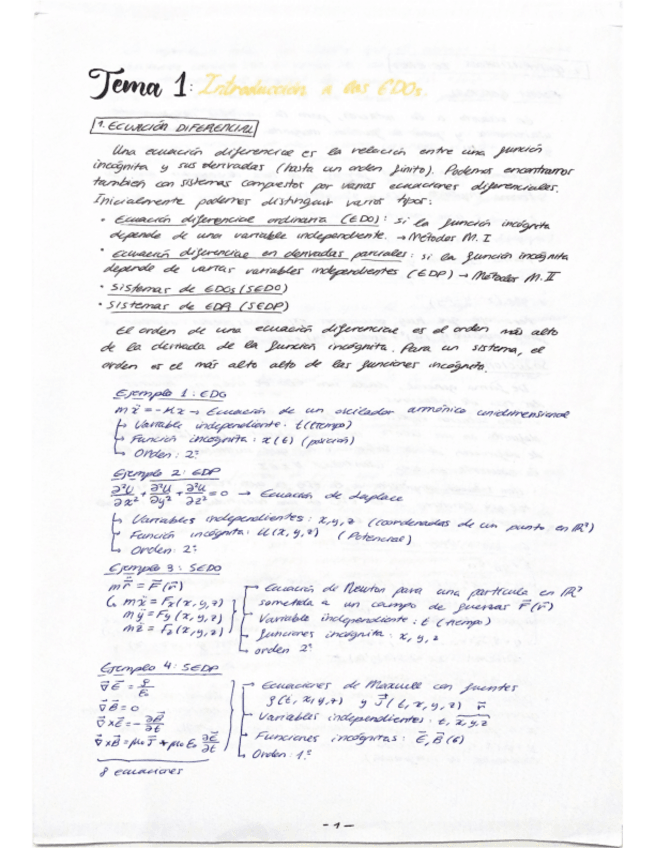 Tema 1: Introducción a las EDOs.
1. ECUACIÓN DIFERENCIAL
Una ecuación diferencial es la relación entre una función
incógnita y sus derivadas (hasta un orden finito). Podemos encontrarnos
también con sistemas compuestos por varias ecuaciones diferenciales.
Inicialmente podemos distinguir varios tipos:
• Ecuación diferencial ordinaria (EDO): si la función incógnita
depende de una variable independiente. → Métodos M. I
• Ecuación diferencial en derivadas parciales: si la función incógnita
depende de varias variables independientes (EDP) → Métodos M. II
• Sistemas de EDOs (SEDO)
• Sistemas de EDP (SEDP)
El orden de una ecuación diferencial es el orden más alto
de la derivada de la función incógnita. Para un sistema, el
orden es el más alto alto de las funciones incógnita.
Ejemplo 1: EDO
mẍ = -Kx → Ecuación de un oscilador armónico unidimensional
Variable independiente: t (tiempo)
Función incógnita: x(t) (posición)
Orden: 2º
Ejemplo 2: EDP
∂²U/∂x² + ∂²U/∂y² + ∂²U/∂z² = 0 → Ecuación de Laplace
Variables independientes: x, y, z (coordenadas de un punto en ℝ³)
Función incógnita: U(x, y, z) (Potencial)
Orden: 2º
Ejemplo 3: SEDO
m r̈ = F(r)
mẍ = Fx(x, y, z)
mÿ = Fy(x, y, z)
mz̈ = Fz(x, y, z)
Ecuación de Newton para una partícula en ℝ³
sometida a un campo de fuerzas F(r)
Variable independiente: t (tiempo)
funciones incógnita: x, y, z
orden 2º
Ejemplo 4: SEDP
∇E = ρ/ε₀
∇B = 0
∇×E = -∂B/∂t
∇×B = μ₀J + μ₀ε₀ ∂E/∂t
8 ecuaciones
Ecuaciones de Maxwell con fuentes
ρ(t, x, y, z) y J(t, x, y, z) r
Variables independientes: t, x, y, z
Funciones incógnitas: E, B (6)
Orden: 1º
- 1 -